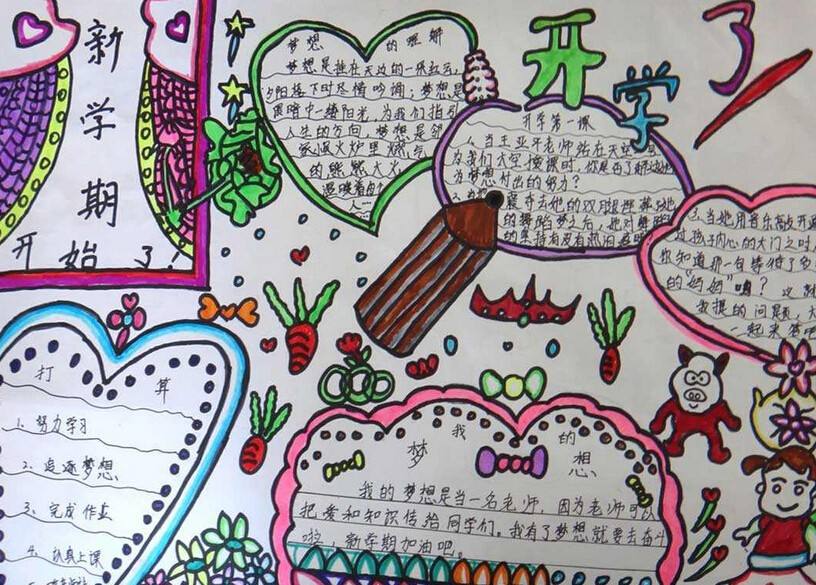 新学期
开始了!
开学了
梦想的理解
梦想是挂在天边的一抹红云,
夕阳落下时尽情吟调;梦想是
黑暗中一缕阳光,为我们指引
人生的方向,梦想是邻
家泥火炉里燃气
的熊熊大火
温暖着
人
开学第一课
1、当王亚平老师站在天空
为我们太空授课时,你是否了解过她
为梦想付出的努力?
夺去他的双腿
的舞蹈梦之后,她对舞蹈
的坚持有没有
3、当她用音乐敲开
过孩子们心的大门之时
你知道那一句等待了多
的“妈妈”吗?这就
我提的问题,大
一起来答吧
打算
1、努力学习
2、追逐梦想
3、完成作业
4、认真上课
我的梦想
我的梦想是当一名老师,因为老师可以
把爱和知识传给同学们。我有了梦想就要去奋斗
啦,新学期加油吧。